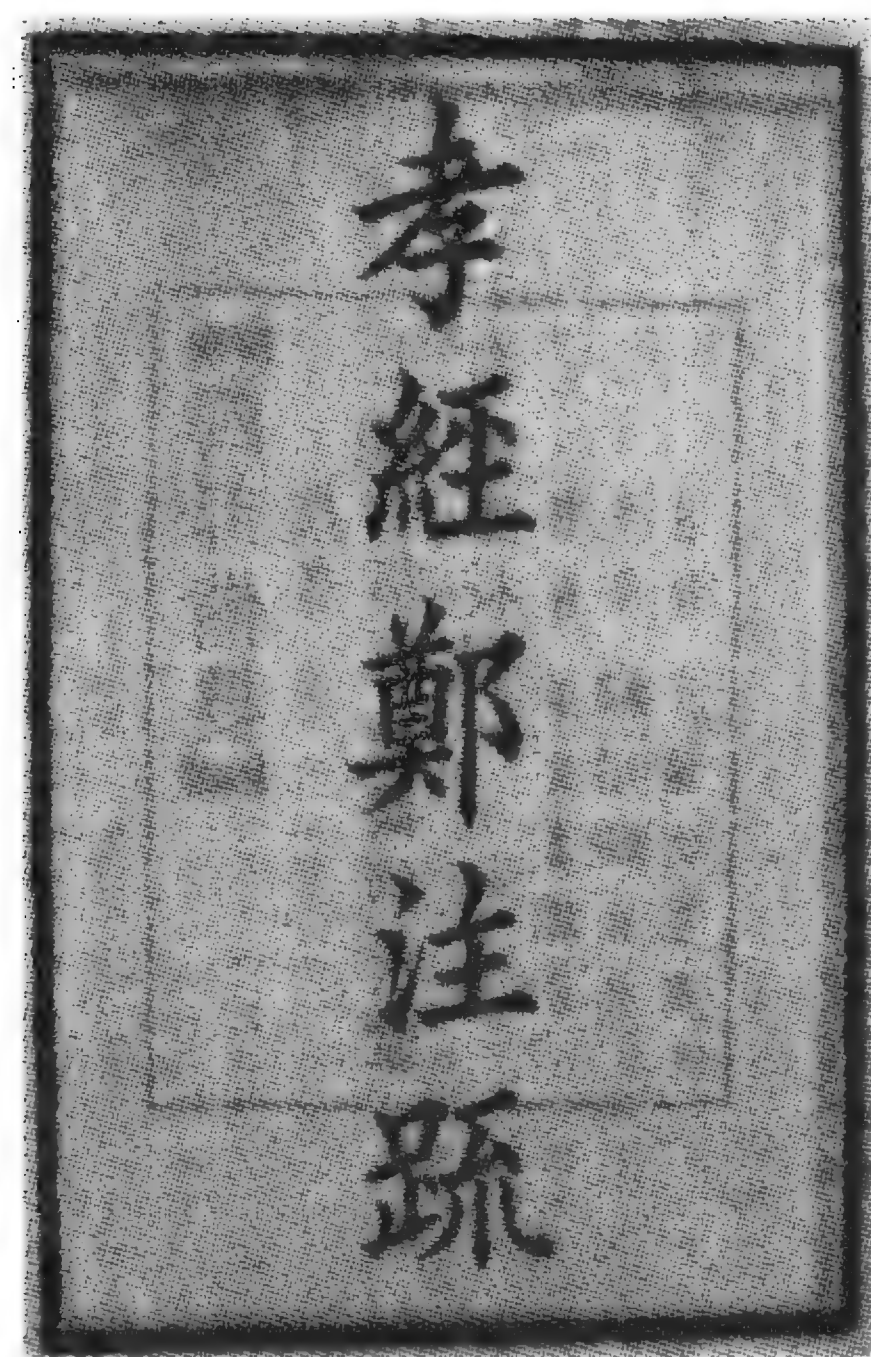 孝經鄭注疏